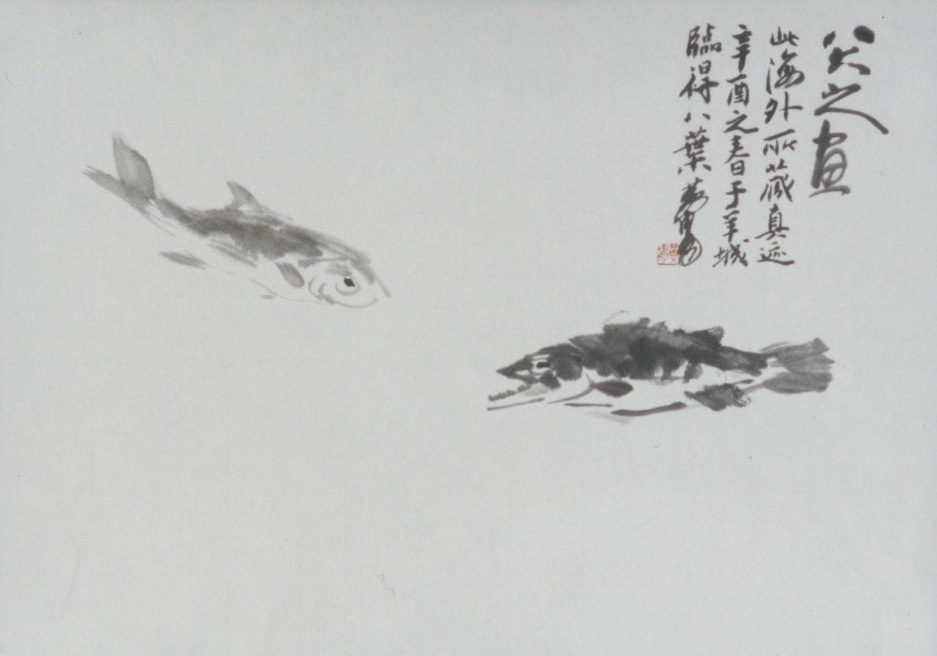 八大山人画
此海外所藏真迹
辛酉之春日于羊城
臨得八葉